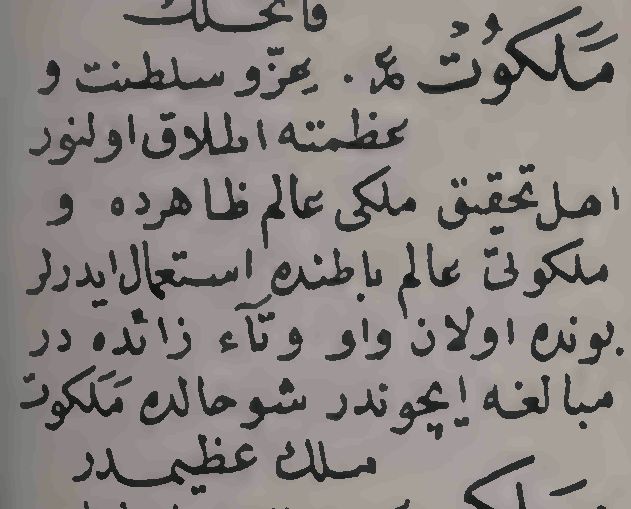 مَلَكُوتْ عز و سلطنت و
عظمته اطلاق اولنور
اهل تحقيق ملكى عالم ظاهرده و
ملكوتى عالم باطنده استعمال ايدرلر
بونده اولان واو و تآء زائده در
مبالغه ايچوندر شو حالده مَلَكوت
ملك عظيمدر